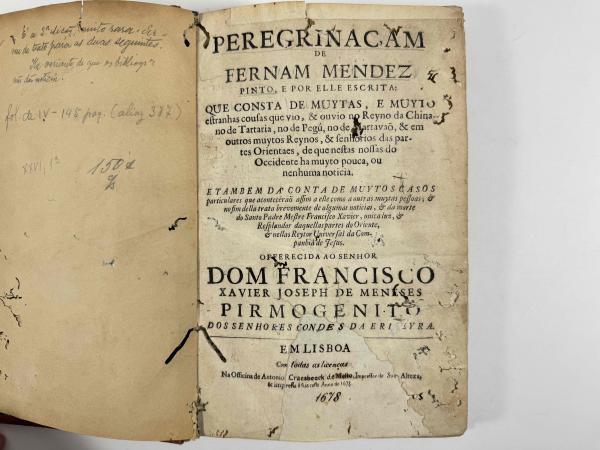 É a 2ª edição, muito rara. Ser-
viu de texto para as duas seguintes.
Há variante de que os bibliogr.
não dão notícia.
fol de IV - 445 pag. (aliaz 387)
XXVI, 1º
PEREGRINACAM
DE
FERNAM MENDEZ
PINTO, E POR ELLE ESCRITA:
QUE CONSTA DE MUYTAS, E MUYTO
estranhas cousas que vio, & ouvio no Reyno da China,
no de Tartaria, no de Pegù, no de Martavaõ, & em
outros muytos Reynos, & senhorios das par-
tes Orientaes, de que nestas nossas do
Occidente ha muyto pouca, ou
nenhuma noticia.
E TAMBEM DA CONTA DE MUYTOS CASOS
particulares que acontecèraõ assim a elle como a outras muytas pessoas; &
no fim della trata brevemente de algumas noticias, & da morte
do Santo Padre Mestre Francisco Xavier, unica luz, &
Resplandor daquellas partes do Oriente,
& nellas Reytor Universal da Com-
panhia de Jesus.
OFFERECIDA AO SENHOR
DOM FRANCISCO
XAVIER JOSEPH DE MENESES
PIRMOGENITO
DOS SENHORES CONDES DA ERICEYRA.
EM LISBOA
Com todas as licenças
Na Officina de Antonio Craesbeeck de Mello, Impressor de Sua Alteza,
& impressa à sua custa Anno de 1678.
1678